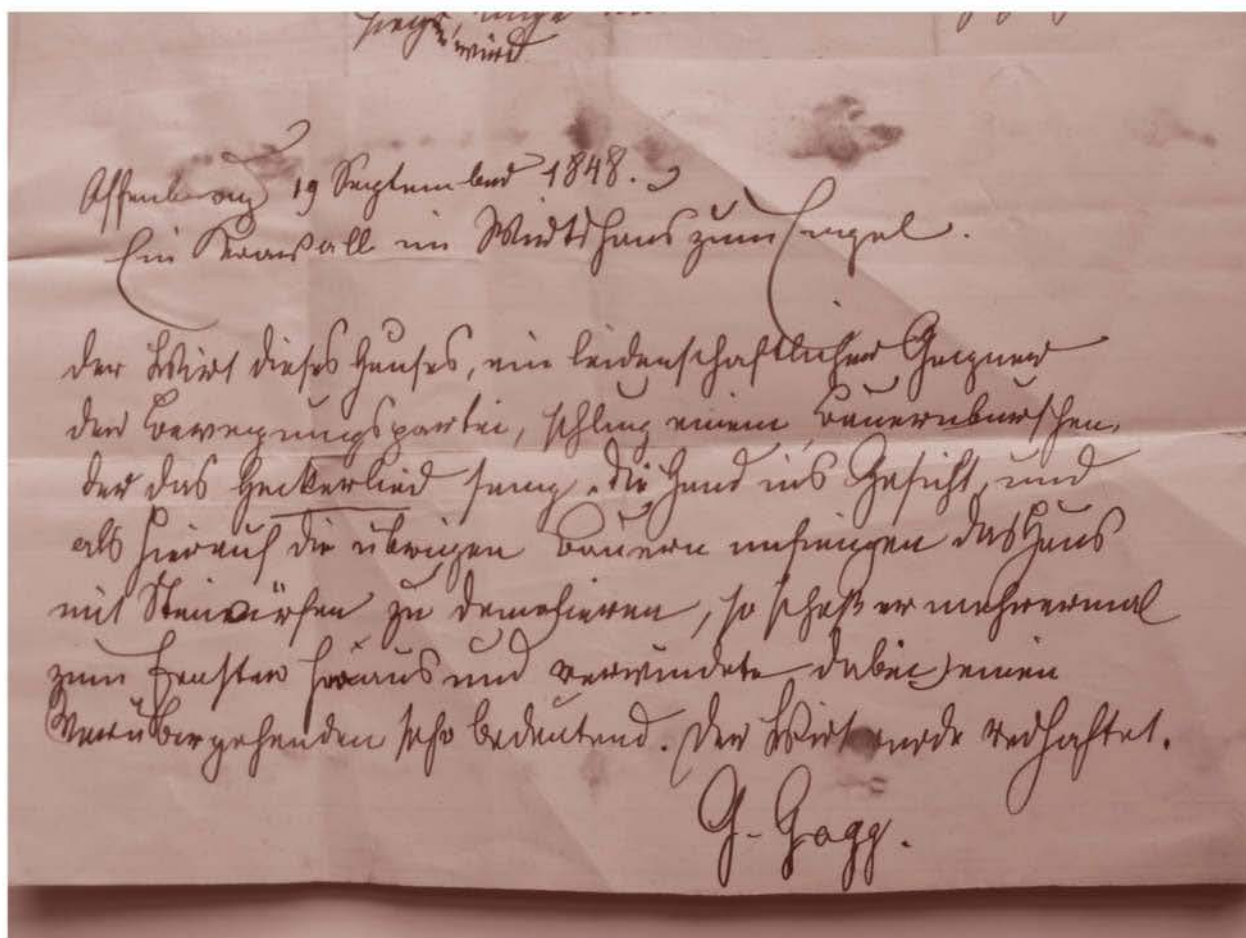 wird
Offenburg 19 September 1848.
Ein Krawall im Wirtshaus zum Engel.
der Wirt dieses Hauses, ein leidenschaftlicher Gegner
der Bewegungspartei, schlug einem Bauernburschen,
der das Heckerlied sang, die Hand ins Gesicht, und
als hierauf die übrigen Bauern anfiengen das Haus
mit Steinwürfen zu demolieren, so schoß er mehrermal
zum Fenster hinaus und verwundete dabei einen
Vorübergehenden sehr bedeutend. Der Wirt wurde verhaftet.
G. Gagg.